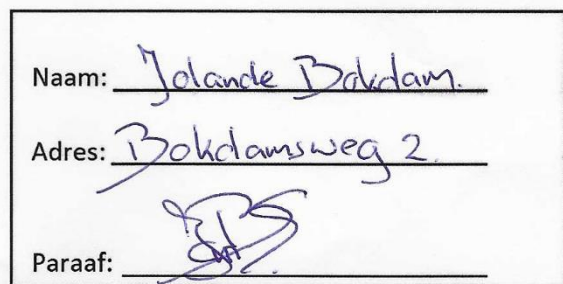 Naam: Jolande Bokdam.
Adres: Bokdamsweg 2.
Paraaf: